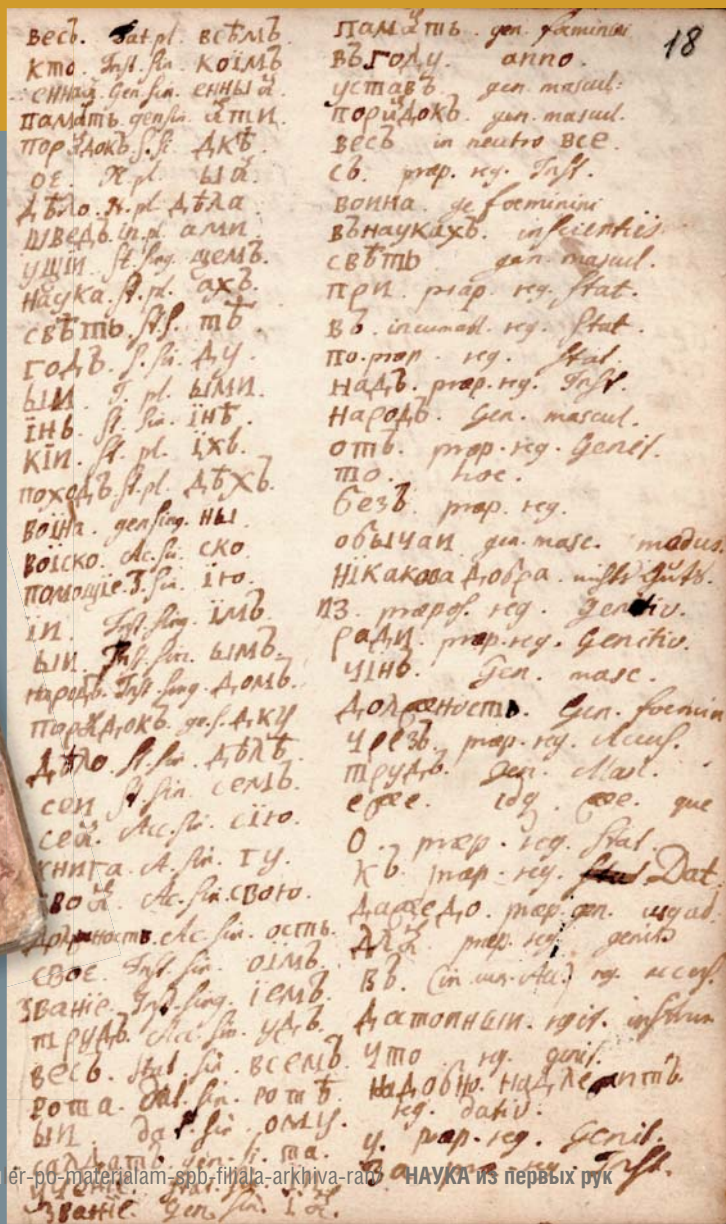 18
весь. Dat. pl. всѣмъ
кто. Inst. sin. коімъ
памѧть. gen sin. ѧти.
ое. N. pl. ыѧ.
дѣло. N. pl. дѣла
шведъ. in. pl. ами.
наука. st. pl. ахъ.
свѣтъ. st. s. тѣ.
годъ. s. sin. ду.
ыи. I. pl. ыми.
інъ. st. sin. інѣ.
кіи. st. pl. іхъ.
походъ. st. pl. дѣхъ.
воіна. gen sing. ны
воіско. Ac. sin. ско
іи. Inst. sing. імъ.
ыи. Inst. sin. ымъ.
народъ. Inst sing. домъ.
дѣло. st. sin. дѣлѣ.
сеи. st. sin. семъ.
сеѧ. Acc. sin. сію.
книга. A. sin. гу.
своѧ. Ac. sin. свою.
должность. Ac. sin. ость.
свое. Inst. sin. оімъ.
званіе. Inst. sing. іемъ.
трудъ. Acc. sin. удъ.
весь. stat. sin. всемъ
рота. Dat. sin. ротѣ.
ыи. dat. sin. ому.
званіе. Gen. sin. іѧ.
памѧть. gen. fœminini
въ году. anno.
уставъ. gen. mascul:
порѧдокъ. gen. mascul.
весь in neutro все.
съ. præp. reg. Inst.
воина. ge fœminini
въ наукахъ. in scientiis
свѣтъ gen. mascul.
при. præp. reg. stat.
въ. reg. stat.
по. præp. reg. stat.
надъ. præp. reg. Inst.
народъ. Gen. mascul.
отъ. præp. reg. Genit.
то. hoc.
безъ. præp. reg.
обычаи gen. masc. modus.
нікакова добра. nichts Guts.
из. præpos. reg. genitiv.
ради. præp. reg. Genitiv.
чінъ. Gen. masc.
должность. Gen. foemin
чрезъ. præp. reg. Accus.
трудъ. Gen. Mas.
еже. idq. же. que
о. præp. reg. stat.
къ. præp. reg. Dat.
даже до. præp. gen. usq ad.
длѧ. præp. reg. genit
въ. reg. accus.
что reg. genit.
надобно. надлежитъ.
reg. dativ.
у. præp. reg. Genit.
За. præp. reg. Inst.
ler-po-materialam-spb-filiala-arkhiva-ran/ НАУКА из первых рук